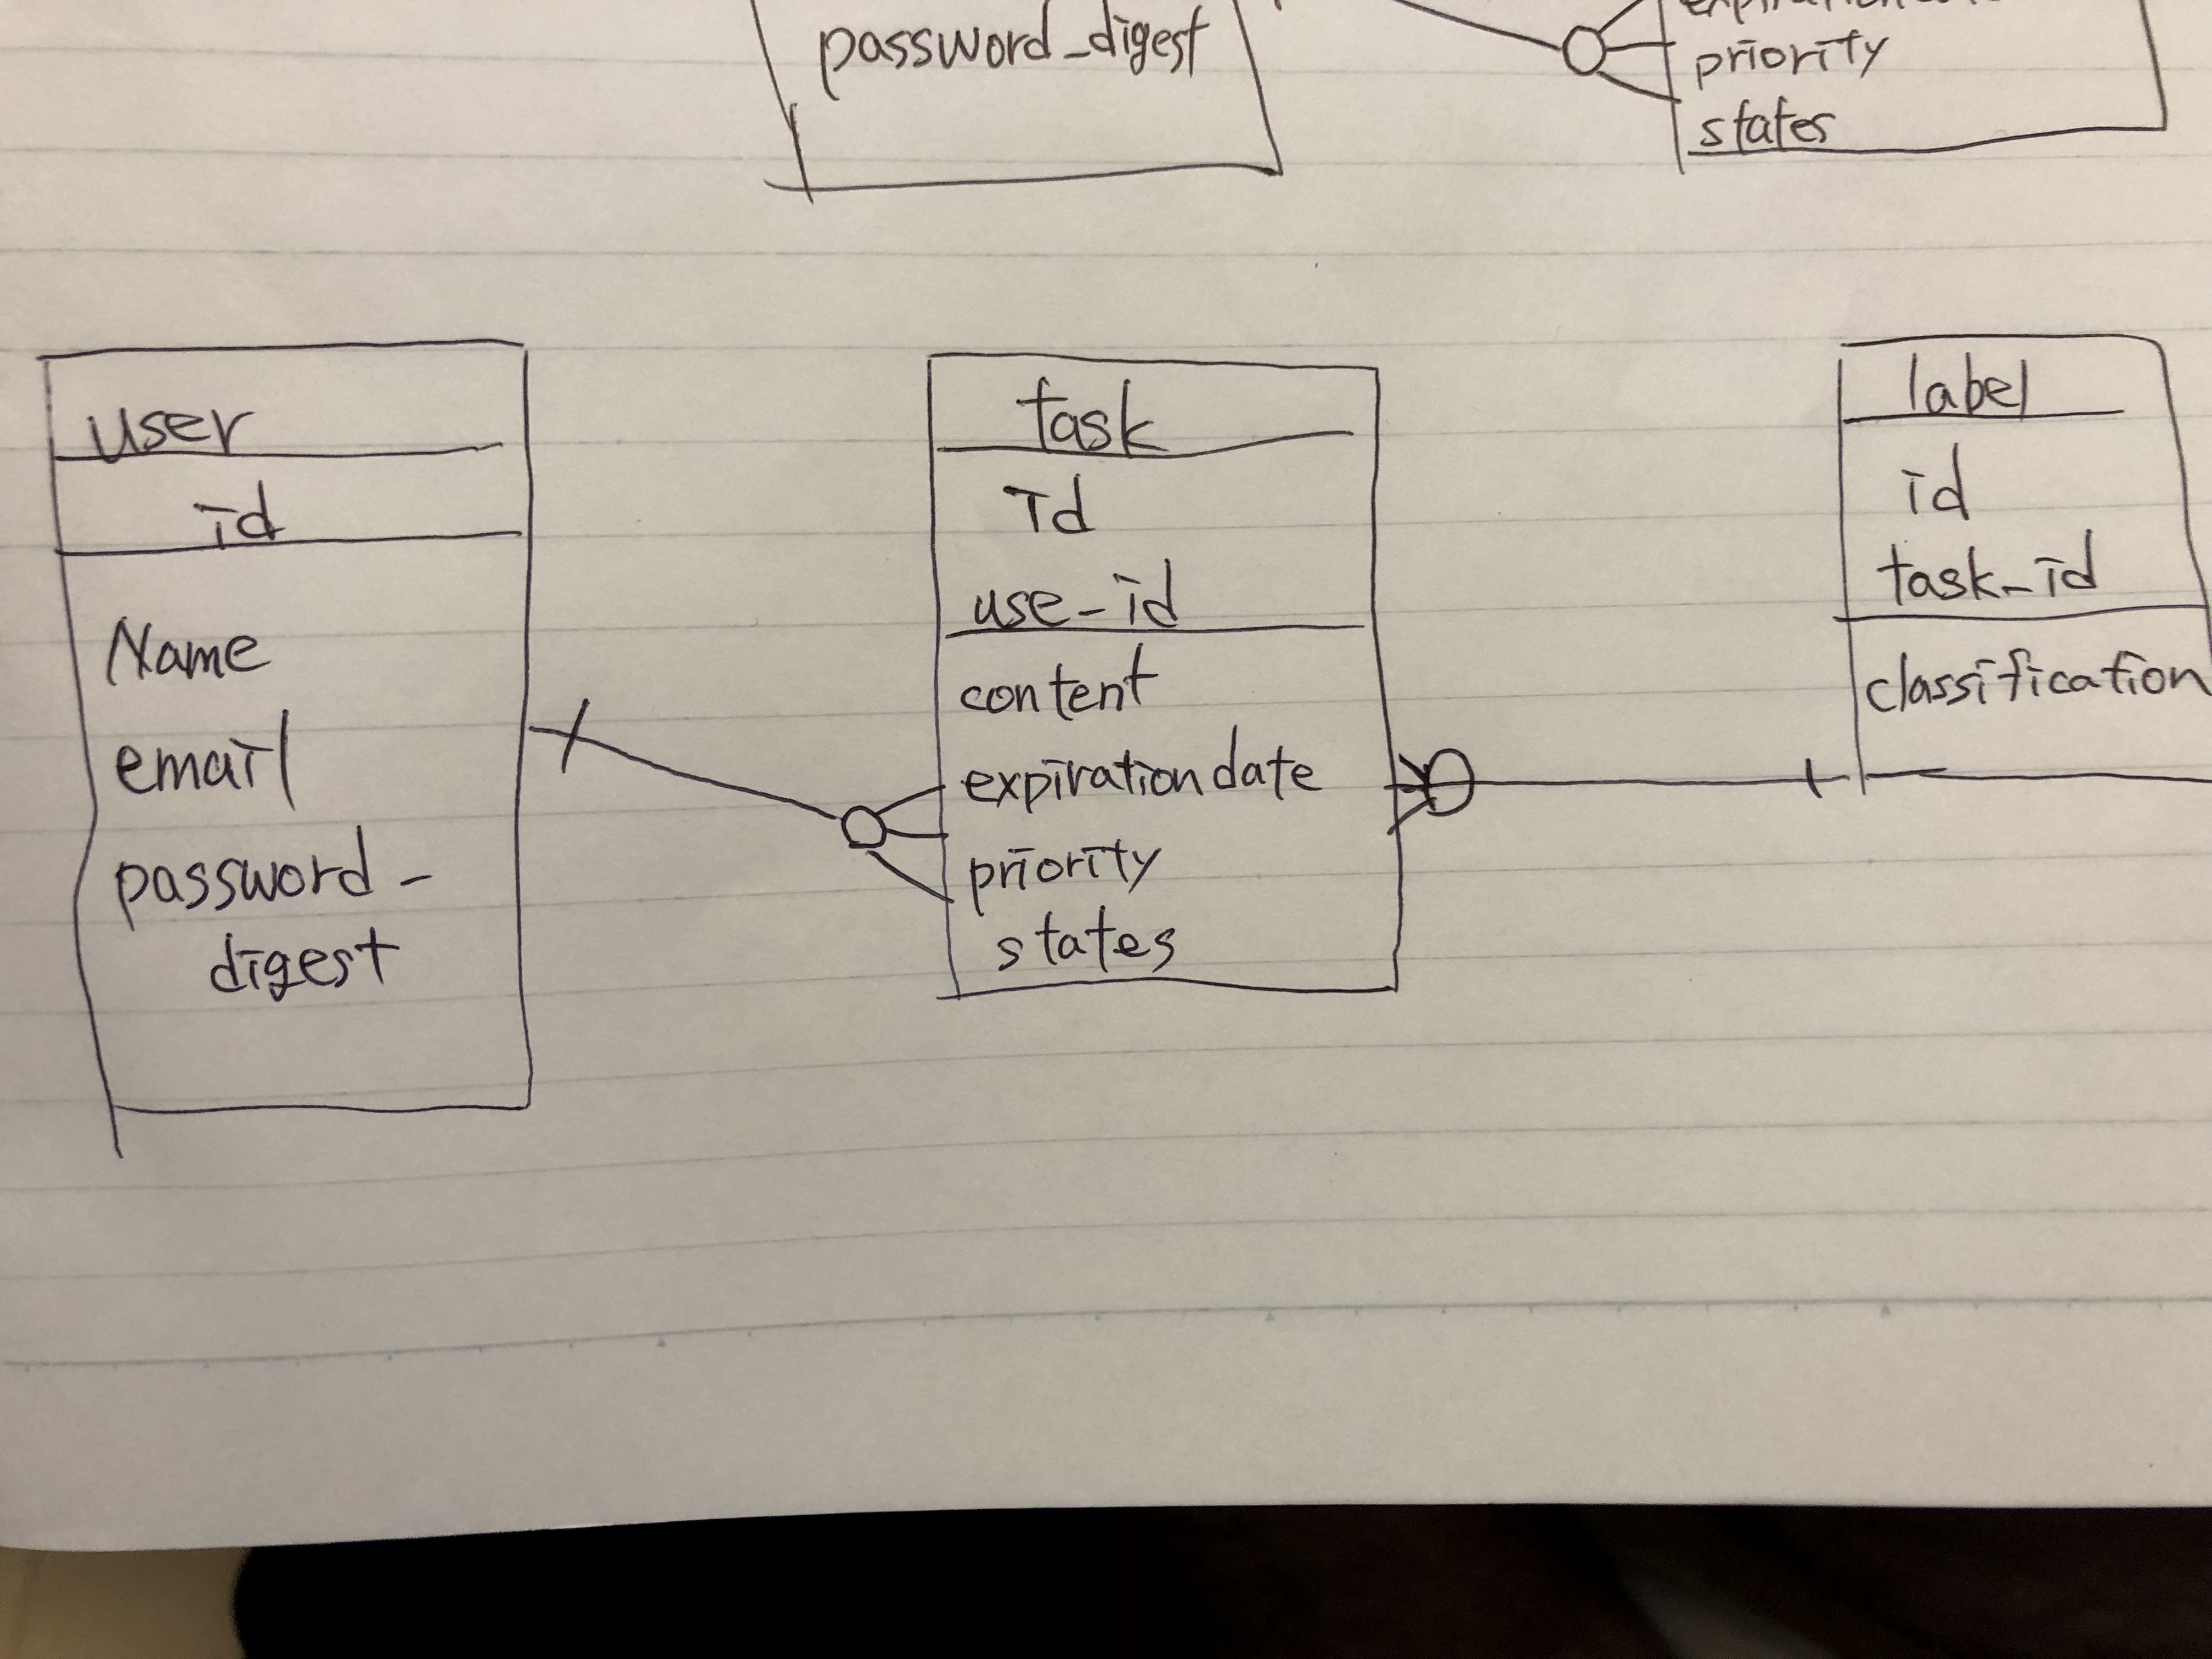 password_digest
priority
states
user
id
Name
email
password_
digest
task
id
use_id
content
expiration date
priority
states
label
id
task_id
classification